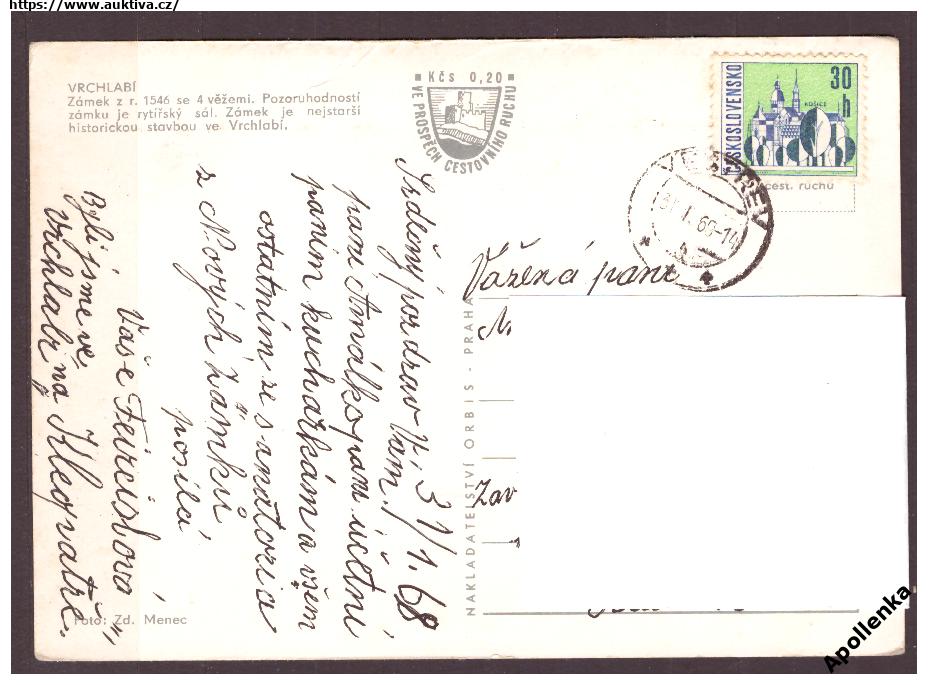 https://www.auktiva.cz/
VRCHLABÍ
Zámek z r. 1546 se 4 věžemi. Pozoruhodností
zámku je rytířský sál. Zámek je nejstarší
historickou stavbou ve Vrchlabí.
Kčs 0,20
VE PROSPĚCH CESTOVNÍHO RUCHU
ČESKOSLOVENSKO
30 h
KOŠICE
cest. ruchu
31/1.68
Srdečný pozdrav Vám,
paní Amálko, paní účetní
paním kuchařkám a všem
ostatním ze sanatoria
z Nových Zámků
posílá
Vaše Feireislová
Byli jsme ve
Vrchlabí na "Kleopatře".
Vážená paní
Zav
NAKLADATELSTVÍ ORBIS - PRAHA
Foto: Zd. Menec
Apollenka